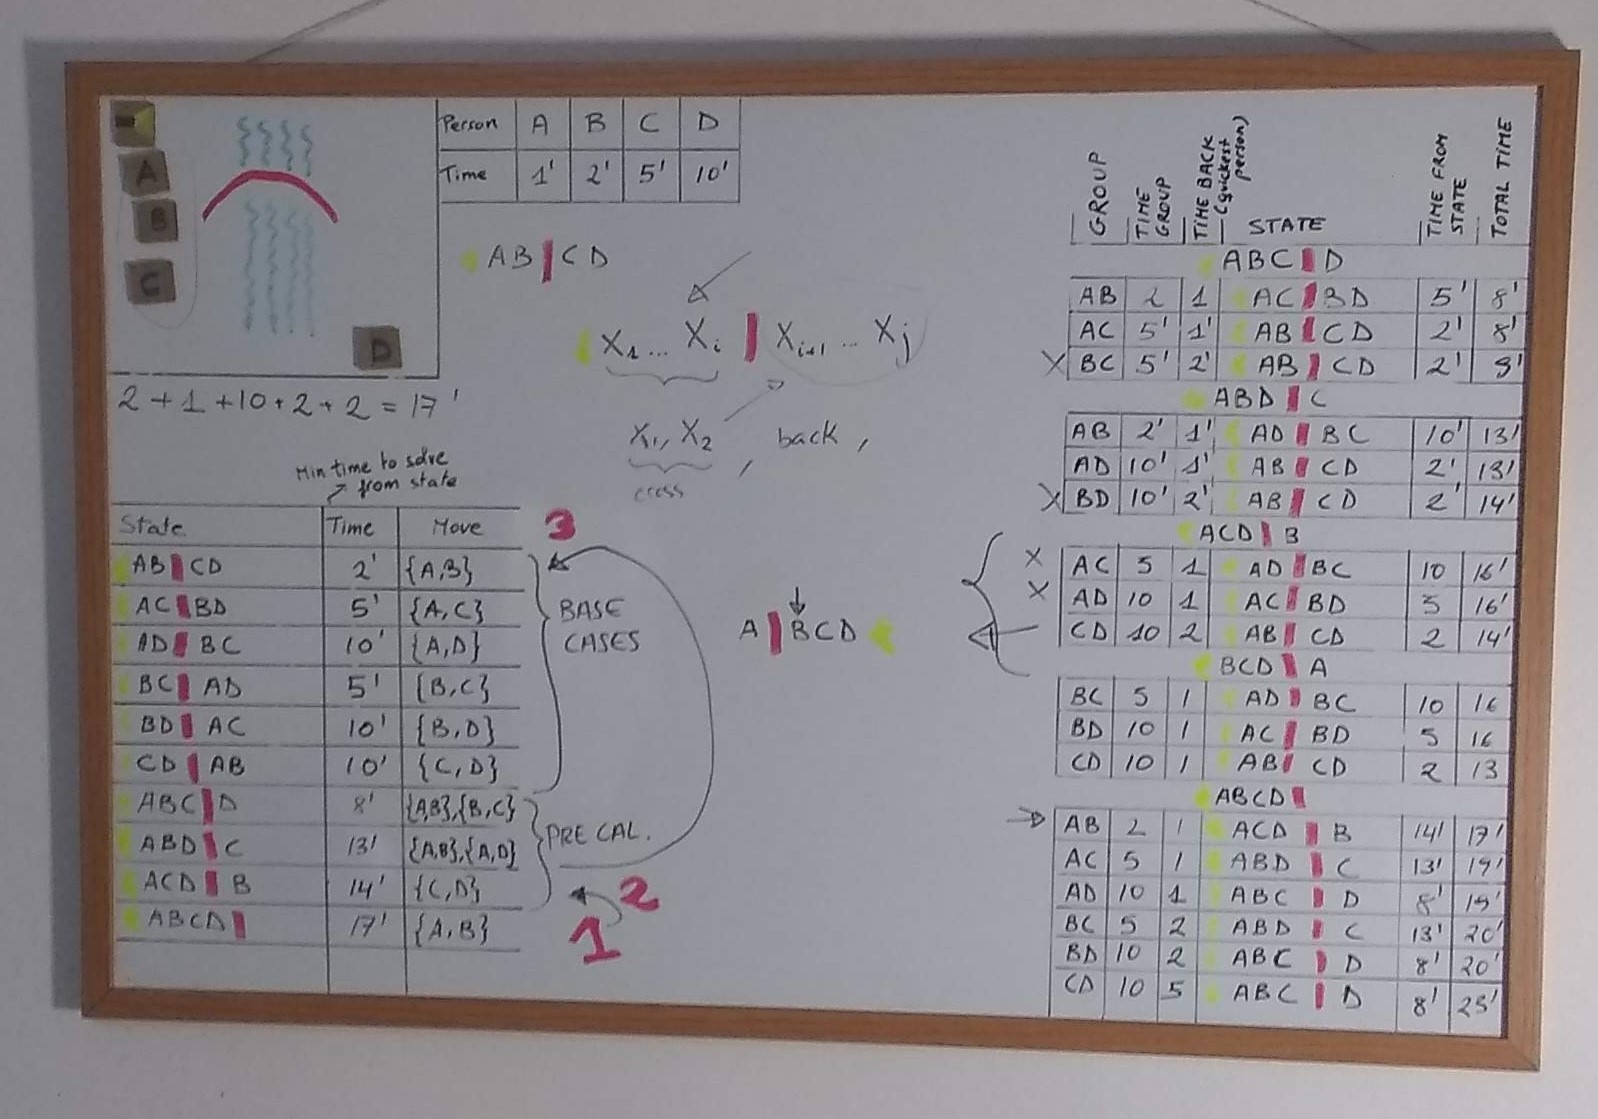 A
B
C
D
Person A B C D
Time 1' 2' 5' 10'
AB | CD
2+1+10+2+2=17'
X1... Xi | Xi+1 ... Xj
X1, X2 , back ,
cross
Min time to solve
from state
State Time Move
AB | CD 2' {A,B}
AC | BD 5' {A,C}
AD | BC 10' {A,D}
BC | AD 5' {B,C}
BD | AC 10' {B,D}
CD | AB 10' {C,D}
ABC | D 8' {A,B},{B,C}
ABD | C 13' {A,B},{A,D}
ACD | B 14' {C,D}
ABCD | 17' {A,B}
3
BASE
CASES
PRE CAL.
2
1
A | BCD
GROUP
TIME
GROUP
TIME BACK
(quickest
person)
STATE
TIME FROM
STATE
TOTAL TIME
ABC | D
AB 2 1 AC | BD 5' 8'
AC 5' 1' AB | CD 2' 8'
X BC 5' 2' AB | CD 2' 9'
ABD | C
AB 2' 1' AD | BC 10' 13'
AD 10' 1' AB | CD 2' 13'
X BD 10' 2' AB | CD 2' 14'
ACD | B
X AC 5 1 AD | BC 10 16'
X AD 10 1 AC | BD 5 16'
CD 10 2 AB | CD 2 14'
BCD | A
BC 5 1 AD | BC 10 16
BD 10 1 AC | BD 5 16
CD 10 1 AB | CD 2 13
ABCD |
AB 2 1 ACD | B 14' 17'
AC 5 1 ABD | C 13' 19'
AD 10 1 ABC | D 8' 19'
BC 5 2 ABD | C 13' 20'
BD 10 2 ABC | D 8' 20'
CD 10 5 ABC | D 8' 23'